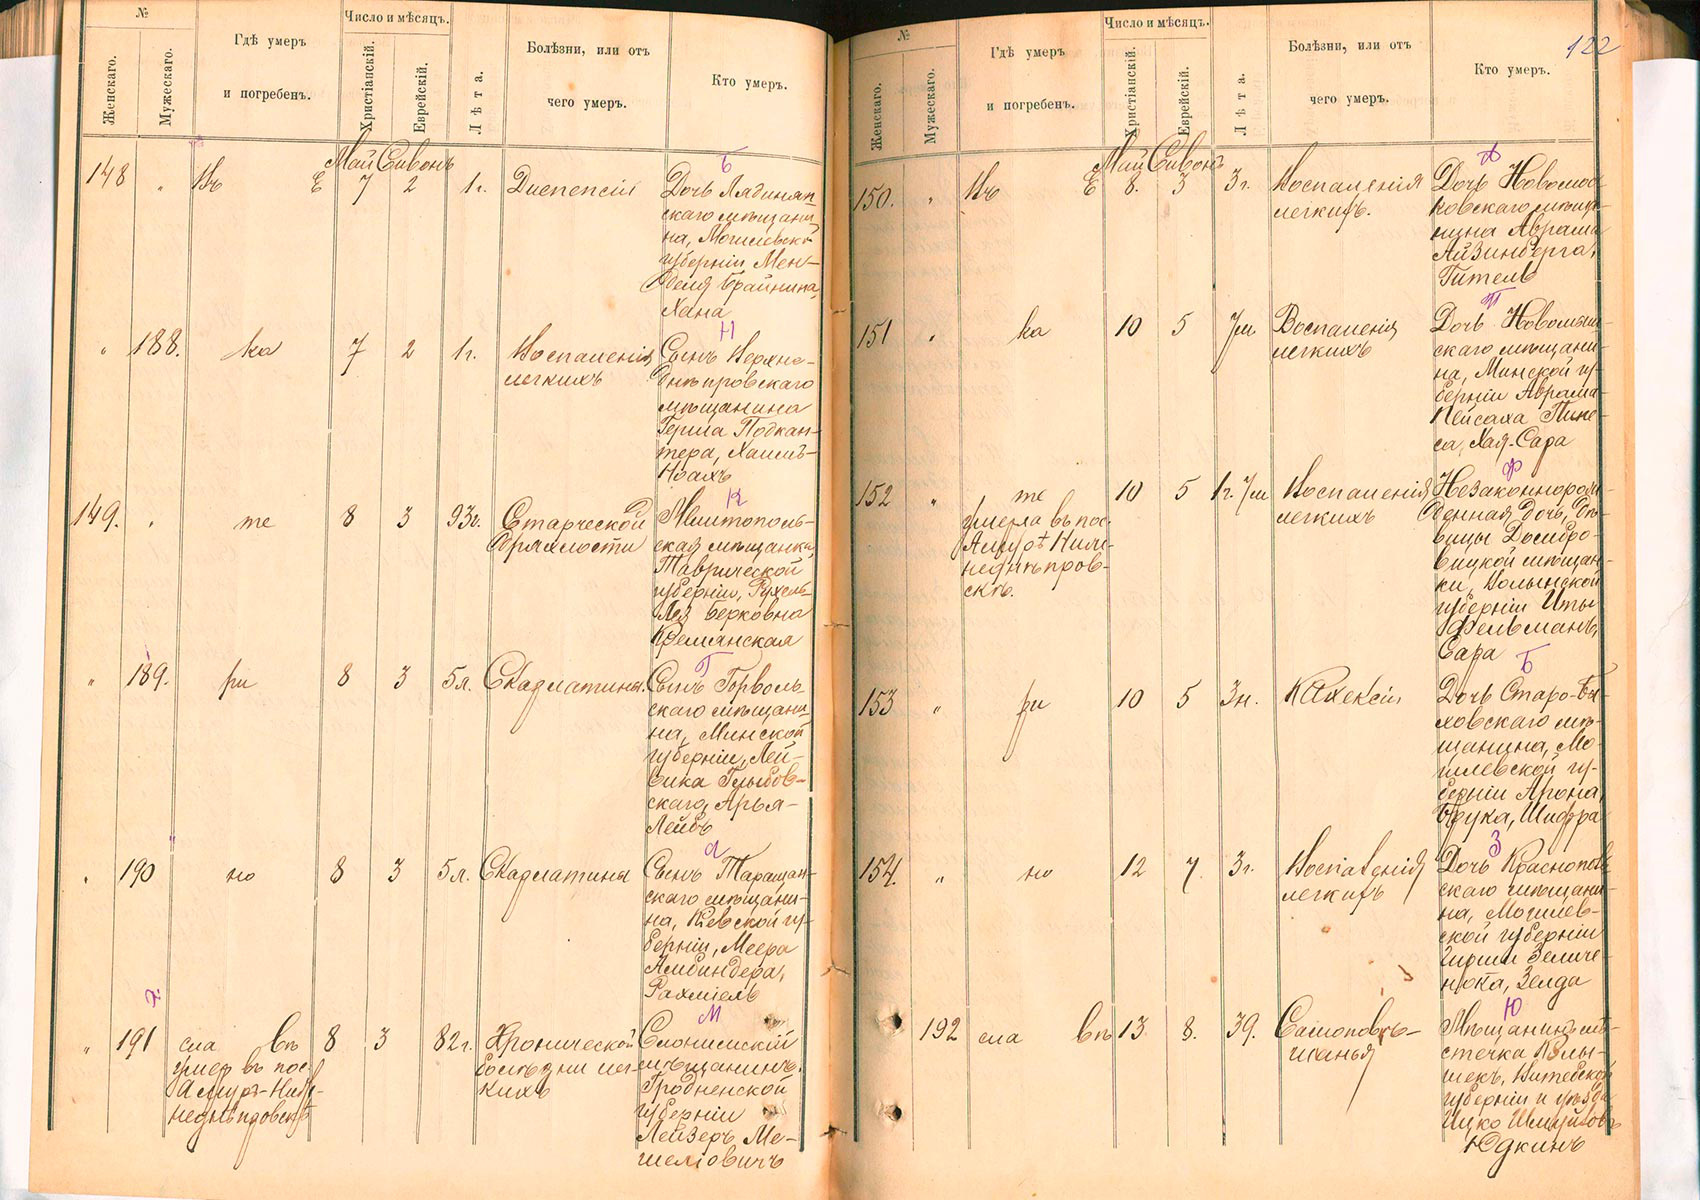 №
Число и мѣсяцъ.
Женскаго.
Мужескаго.
Гдѣ умеръ
и погребенъ.
Христіанскій.
Еврейскій.
Лѣта.
Болѣзни, или отъ
чего умеръ.
Кто умеръ.
Май Сивонъ
148 " Въ Е 7 2 1 г. Диспепсіи
Б
Дочь Лядинян-
скаго мѣщани-
на, Могилевской
губерніи Мен-
деля Брайнина,
Хана
" 188. ка 7 2 1 г. Воспаленія
легкихъ
Н
Сынъ Верхне-
днѣпровскаго
мѣщанина
Герша Подкан-
тера, Хаимъ-
Ноахъ
149. " те 8 3 93 г. Старческой
дряхлости
К
Мелитополь-
ская мѣщанка,
Таврической
губерніи, Рухель-
Лея Берковна
Кремянская
" 189. ри 8 3 5 л. Скарлатины.
Г
Сынъ Горволь-
скаго мѣщани-
на, Минской
губерніи, Лей-
вика Глыбов-
скаго, Арья-
Лейбъ
" 190 но 8 3 5 л. Скарлатины
А
Сынъ Таращан-
скаго мѣщани-
на, Кіевской гу-
берніи, Меера
Альбиндера,
Рахміель
" 191 сла въ 8 3 82 г. Хронической
умер въ пос.
Амуръ-Ниж-
неднѣпровскѣ
болѣзни лег-
кихъ
М
Слонимскій
мѣщанинъ.
Гродненской
губерніи
Лейзеръ Ме-
шеловичъ
122
№
Число и мѣсяцъ.
Женскаго.
Мужескаго.
Гдѣ умеръ
и погребенъ.
Христіанскій.
Еврейскій.
Лѣта.
Болѣзни, или отъ
чего умеръ.
Кто умеръ.
Май Сивонъ
150. " Въ Е 8. 3 3 г. Воспаленія
легкихъ.
Дочь Новомос-
ковскаго мѣща-
нина Абрама
Айзинберга,
Гитель
151 " ка 10 5 7 м Воспаленія
легкихъ
П
Дочь Новомыш-
скаго мѣщани-
на, Минской гу-
берніи Абрама-
Пейсаха Пине-
са, Хая-Сара
152 " те 10 5 1 г. 7 м Воспаленія
легкихъ
умерла въ пос.
Амурѣ Ниж-
неднѣпров-
скѣ.
Ф
Незаконнорож-
денная дочь, дѣ-
вицы Домбро-
вицкой мѣщан-
ки, Волынской
губерніи Иты
Фельманъ,
Сара
153 " ри 10 5 3 н. Кахексіи
Б
Дочь Старо-Бы-
ховскаго мѣ-
щанина, Мо-
гилевской гу-
берніи Арона
Брука, Шифра
154. " но 12 7. 3 г. Воспаленія
легкихъ
З
Дочь Краснополь-
скаго мѣщани-
на, Могилев-
ской губерніи
Гирши Зеличе-
нока, Зелда
192 сла въ 13 8. 39. Самоповѣ-
шанья
Ю
Мѣщанинъ мѣ-
стечка Колы-
шекъ, Витебской
губерніи и уѣзда
Ицко Шмуйловъ
Юдкинъ